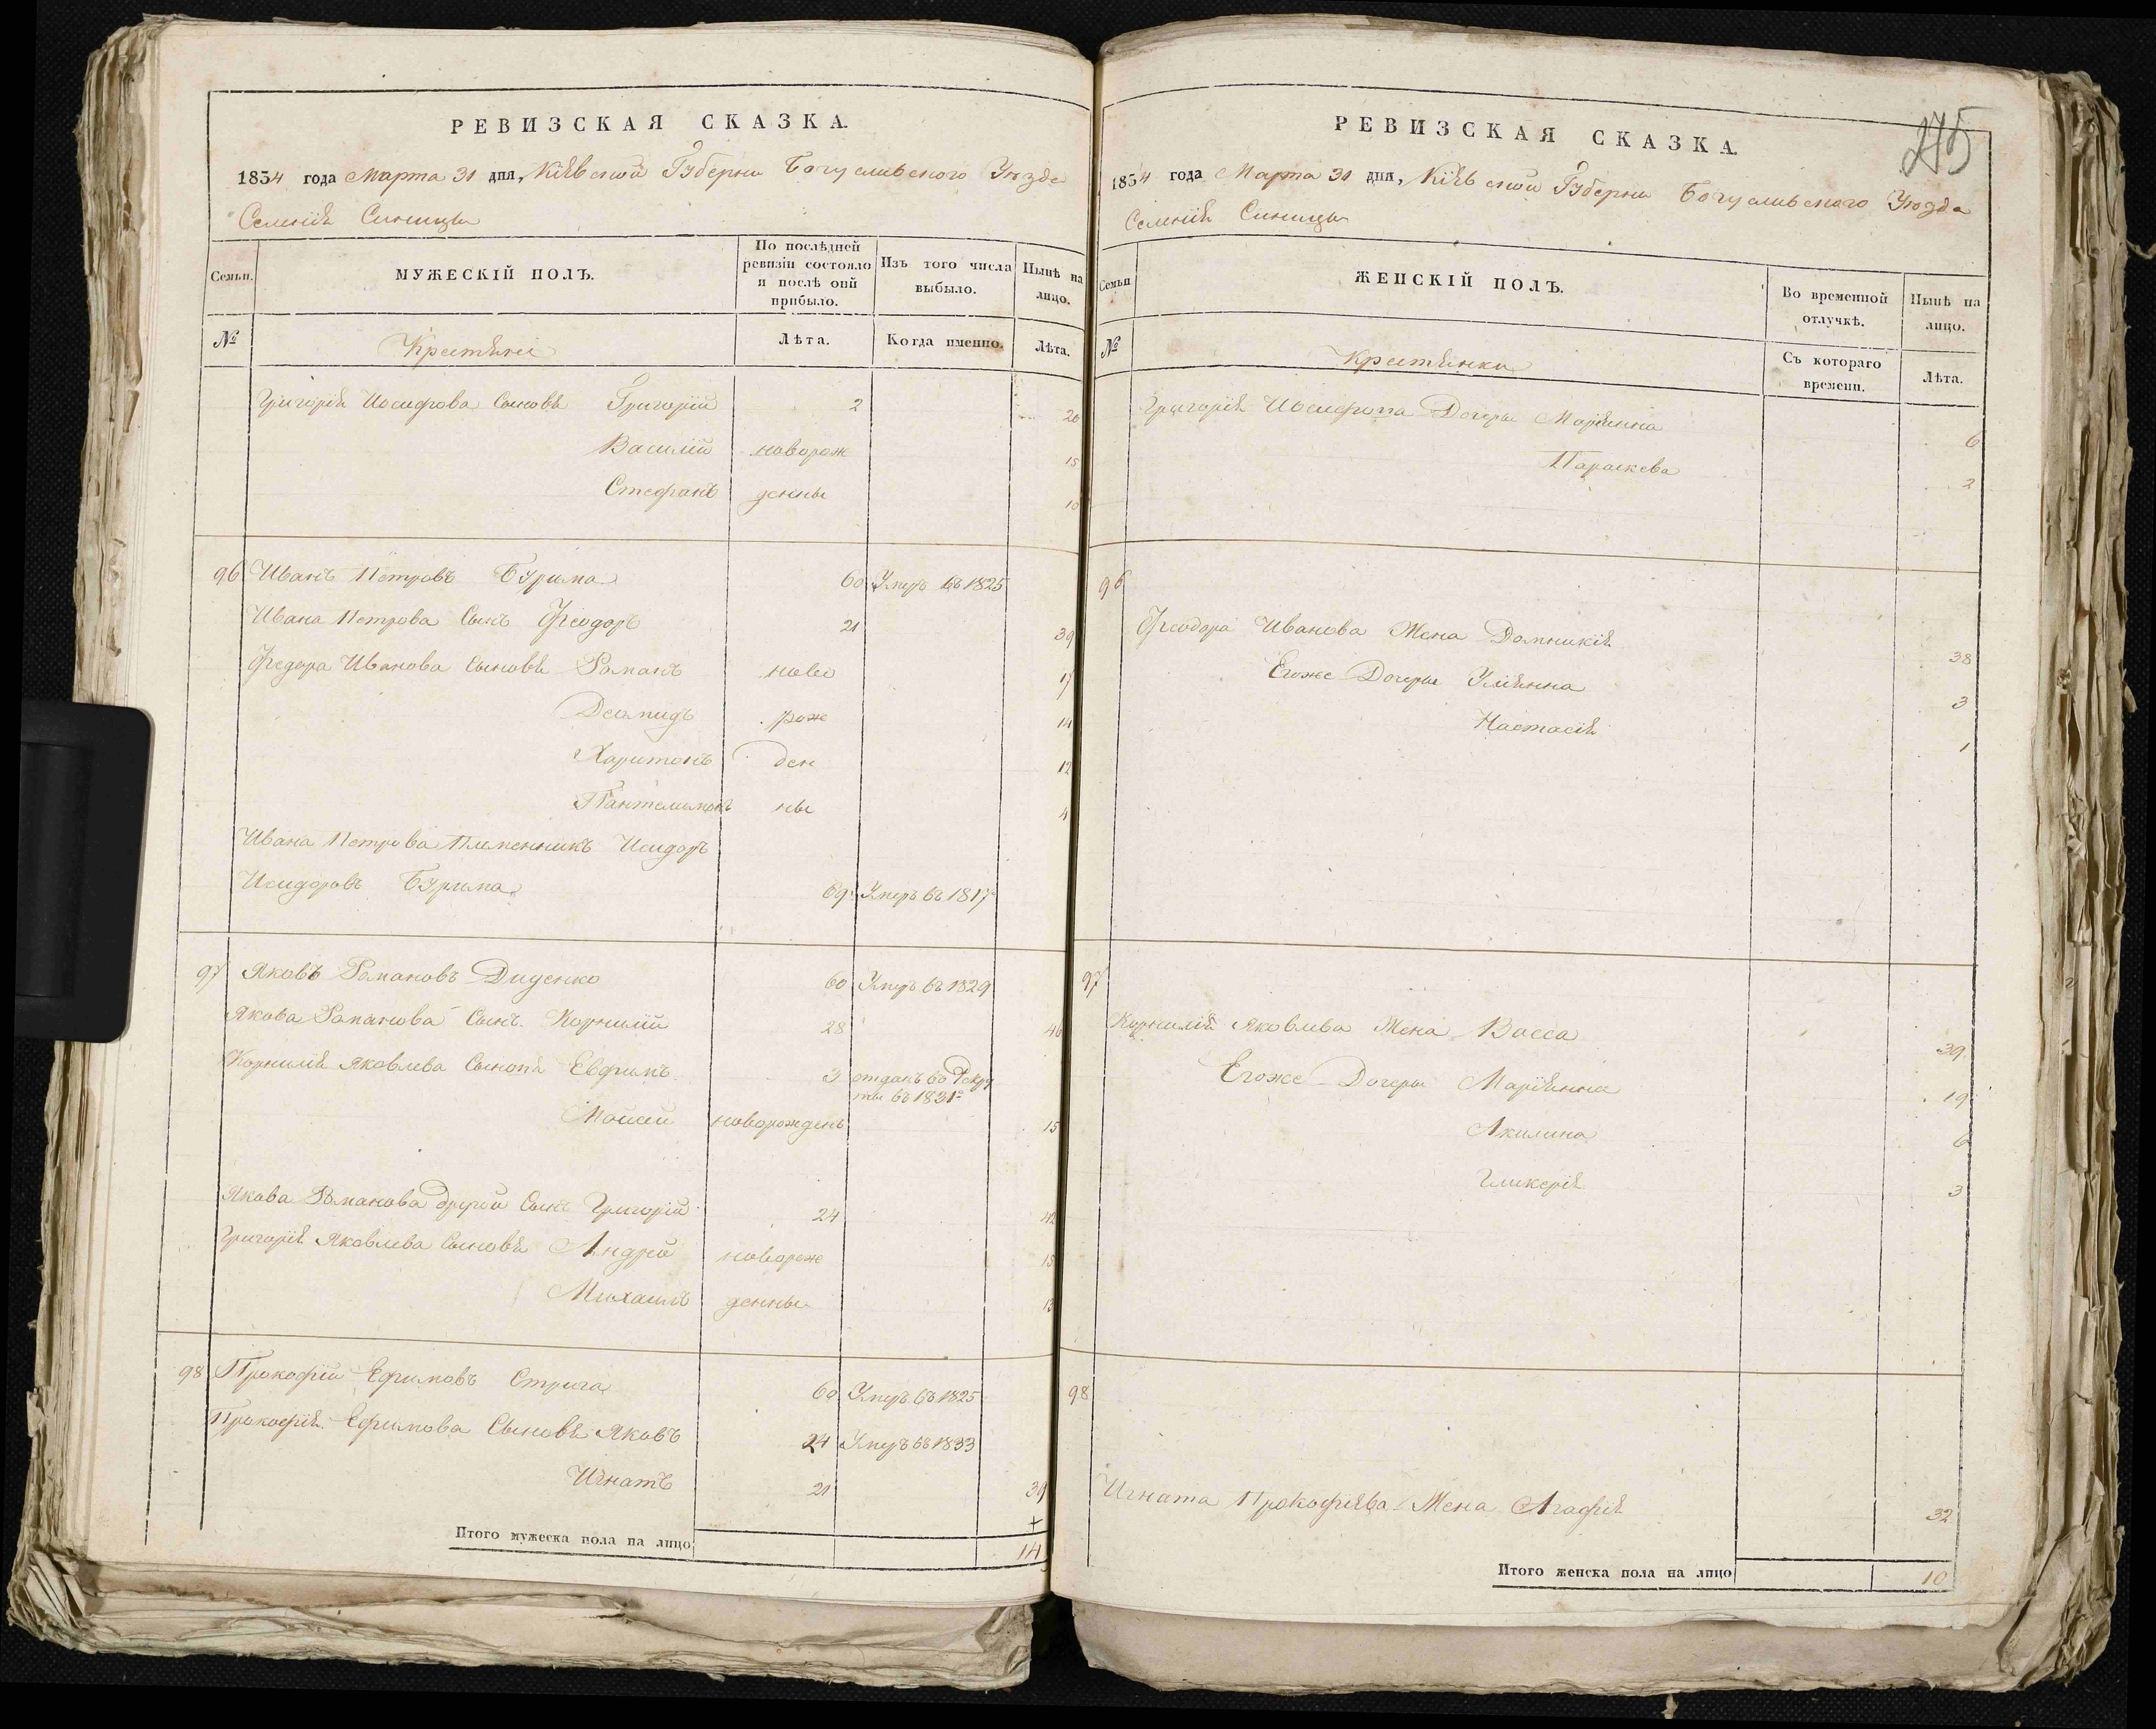 РЕВИЗСКАЯ СКАЗКА.
1834 года Марта 31 дня, Кіевской Губерни Богуславского Уѣзда
Селенія Синицы
Семьи.
МУЖЕСКІЙ ПОЛЪ.
По послѣдней ревизіи состояло и послѣ оній прибыло.
Изъ того числа выбыло.
Нынѣ на лицо.
№
Крестяне
Лѣта.
Когда именно.
Лѣта.
Григорія Иосифова Сыновя Григорій 2 20
Василій новорож 15
Стефанъ денны 10
96 Иванъ Петровъ Бурима 60 Умеръ въ 1825
Ивана Петрова Сынъ Феодоръ 21 39
Федора Иванова Сыновя Романъ ново 17
Демидъ рож 14
Харитонъ ден 12
Пантелимонъ ны 4
Ивана Петрова Племенникъ Исидоръ
Исидоровъ Бурима 69 Умеръ въ 1817
97 Яковъ Романовъ Диденко 60 Умеръ въ 1829
Якова Романова Сынъ Корнилій 28 46
Корнилія Яковлева Сыновя Евфимъ 3 отданъ во Рекру
ты въ 1831
Моисей новорожденъ 15
Якова Романова другой Сынъ Григорій 24 42
Григорія Яковлева Сыновя Андрей новорож 15
Михаилъ денны 13
98 Прокофій Ефимовъ Стрига 60 Умеръ въ 1825
Прокофія Ефимова Сыновя Яковъ 24 Умеръ въ 1833
Игнатъ 21 39
Итого мужеска пола на лицо 14
РЕВИЗСКАЯ СКАЗКА.
275
1834 года Марта 31 дня, Кіевской Губерни Богуславского Уѣзда
Селенія Синицы
Семьи
ЖЕНСКІЙ ПОЛЪ.
Во временной отлучкѣ.
Нынѣ на лицо.
№
Крестянки
Съ котораго времени.
Лѣта.
Григорія Иосифова Дочеры Маріянна 6
Параскева 2
96
Феодора Иванова Жена Домникія 38
Егоже Дочеры Уліянна 3
Настасія 1
97
Корнилія Яковлева Жена Васса 39
Егоже Дочеры Маріянна 19
Акилина 6
Гликерія 3
98
Игната Прокофіева Жена Агафія 32
Итого женска пола на лицо 10